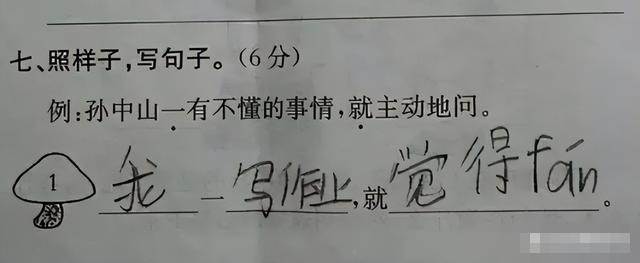 七、照样子,写句子。(6分)
例:孙中山一有不懂的事情,就主动地问。
1 我一写作业,就觉得fán。